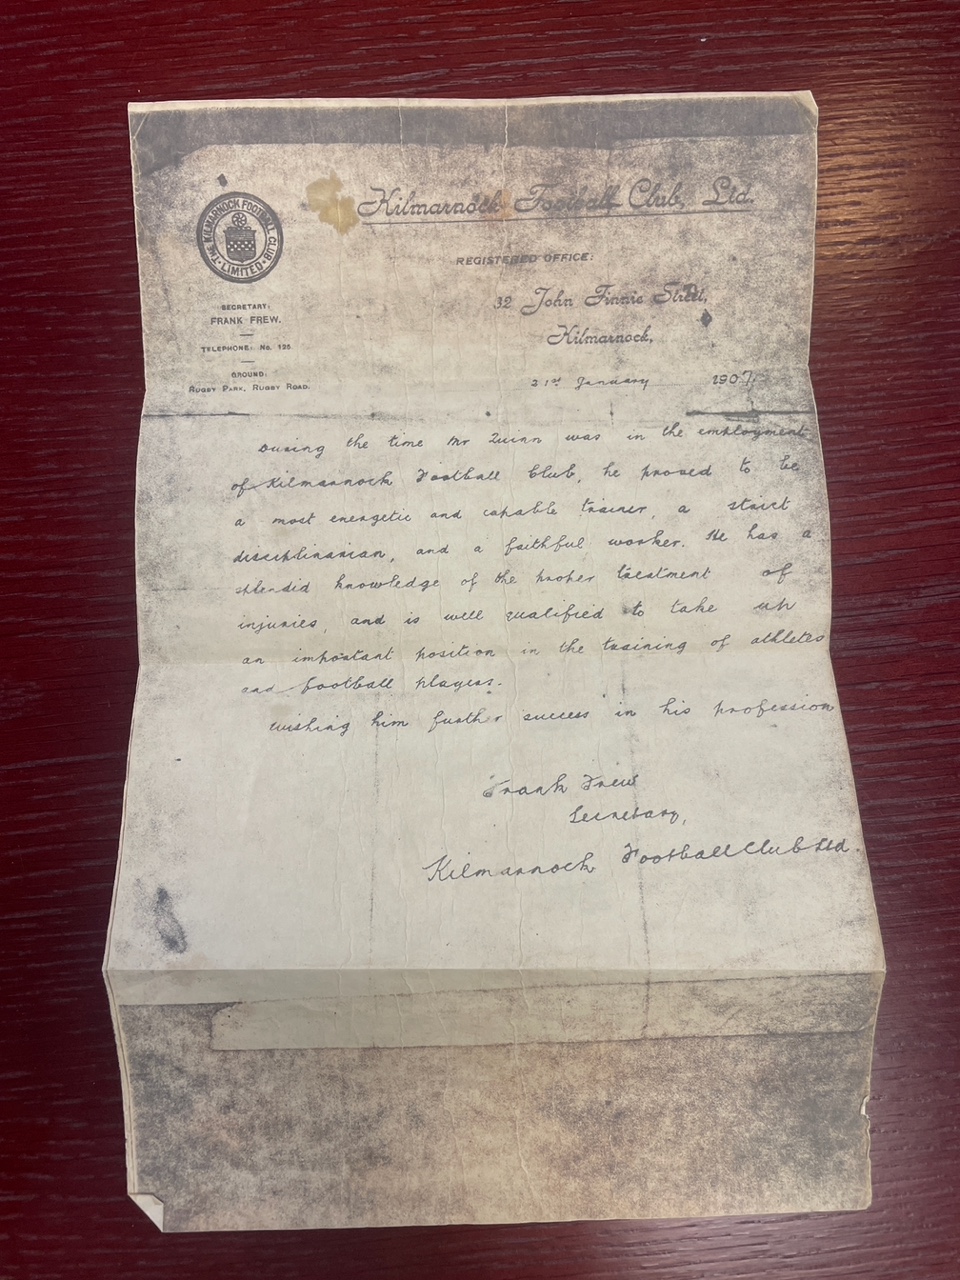 Kilmarnock Football Club, Ltd.
THE KILMARNOCK FOOTBALL CLUB
LIMITED
REGISTERED OFFICE:
32 John Finnie Street,
Kilmarnock,
SECRETARY:
FRANK FREW.
TELEPHONE: No. 125.
GROUND:
RUGBY PARK, RUGBY ROAD.
21st January 1907
During the time Mr Quinn was in the employment
of Kilmarnock Football Club, he proved to be
a most energetic and capable trainer, a strict
disciplinarian, and a faithful worker. He has a
splendid knowledge of the proper treatment of
injuries, and is well qualified to take up
an important position in the training of athletes
and football players.
Wishing him further success in his profession
Frank Frew
Secretary,
Kilmarnock Football Club Ltd.